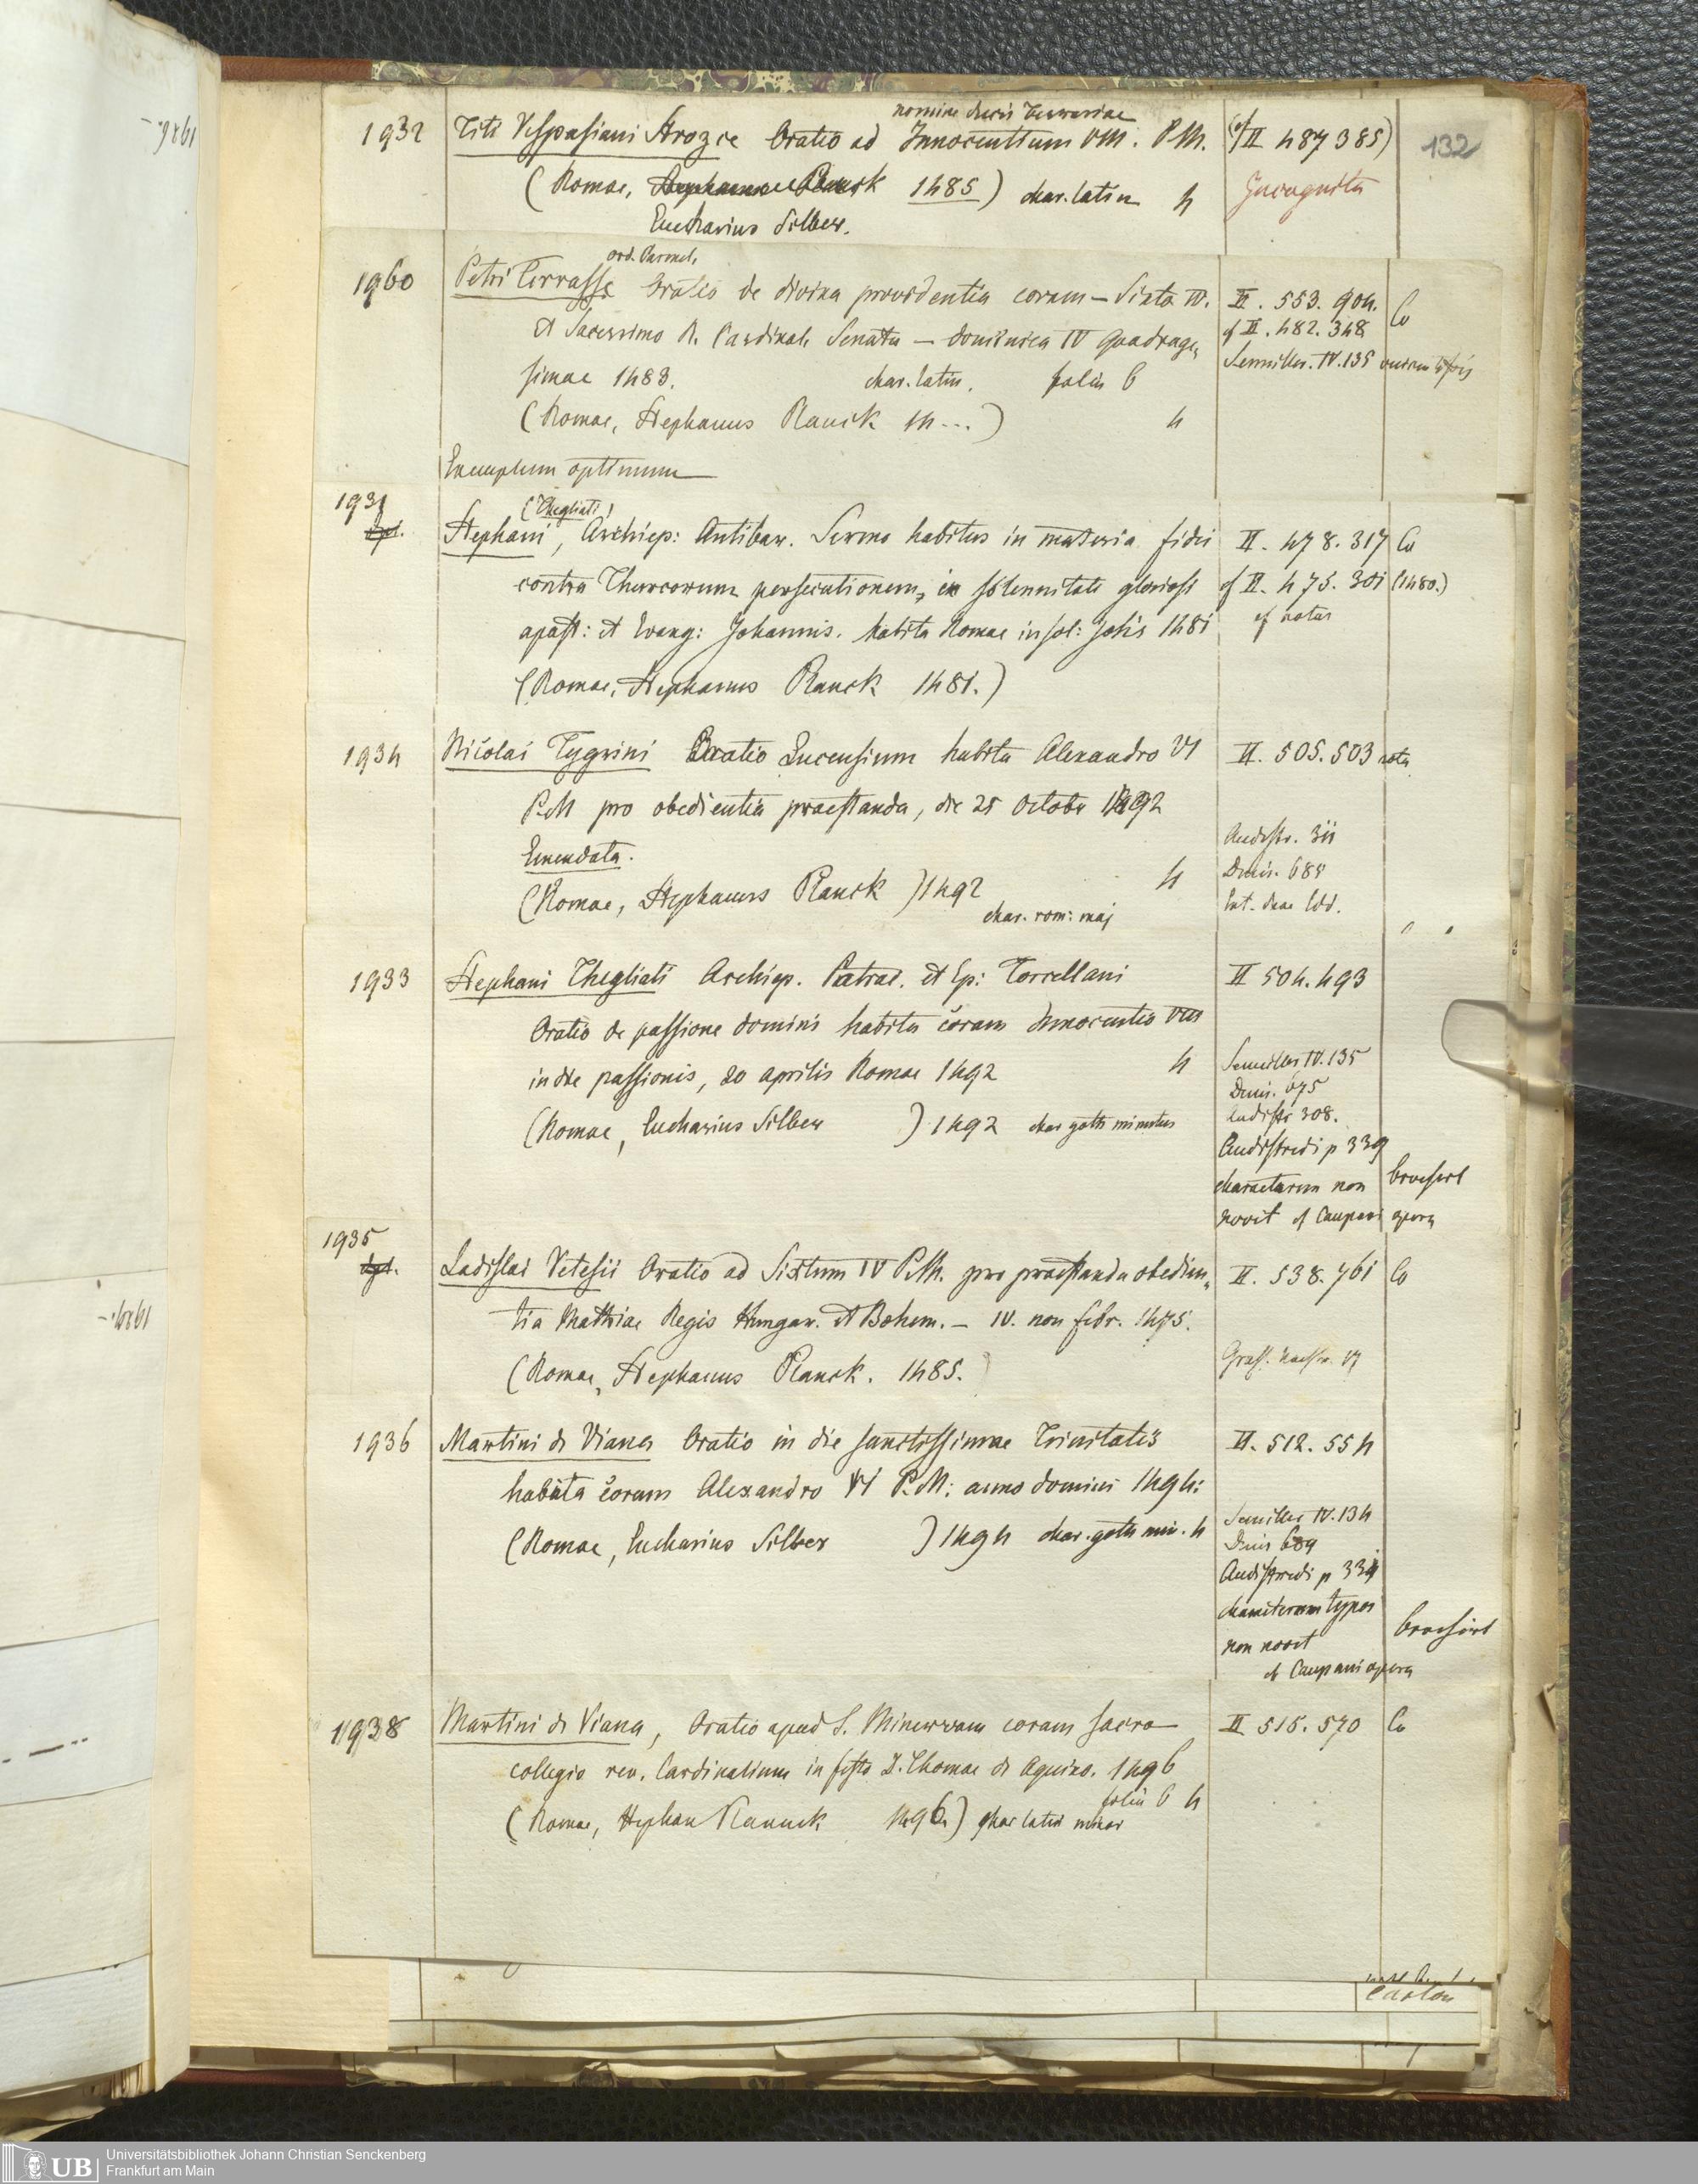 132
nomine ducis Ferrariae
1932 Titi Vespasiani Strozae Oratio ad Innocentium VIII. P.M. (cf II 487 385)
(Romae, Stephanus Planck 1485) char. latin 4 Incognita
Eucharius Silber.
ord. Carmel.
1960 Petri Terrasse Oratio de divina providentia coram — Sixto IV. II. 553. 904. Co
et Sacerrimo R. Cardinal. Senatu — dominica IV Quadrage, cf II. 482. 348
simae 1483. char. latin. folia 6 Semiller. IV. 135
(Romae, Stephanus Planck 14...) 4
Exemplum optimum
1931 (Thegliati)
Stephani, Archiep: Antibar. Sermo habitus in materia fidei II. 478. 317 Co
contra Thurcorum persecutionem, ex solennitate gloriosi cf II. 475. 301 (1480.)
apost: et Evang: Johannis. habita Romae in fol: 1481 cf notas
(Romae, Stephanus Planck 1481.)
1934 Nicolai Tygrini Oratio Lucensium habita Alexandro VI II. 505. 503 nota
P.M pro obedientia praestanda, die 25 Octobr 1492
Emendata. Audiffr. 311
(Romae, Stephanus Planck ) 1492 4 Denis. 688
char. rom: maj Ext. duae Edd.
1933 Stephani Thegliati Archiep. Patrac. et Ep: Torcellani II 504. 493
Oratio de passione domini habita coram Innocentio VIII
in die passionis, 20 aprilis Romae 1492 4 Semiller IV. 135
Denis. 675
(Romae, Eucharius Silber ) 1492 char goth minutus Audiffr 308.
Audiffredi p 339
characterem non brochirt
novit cf Campani opera
1935
Ladislai Vetesii Oratio ad Sixtum IV P.M. pro praestanda obedien, II. 538. 761 Co
tia Mathiae Regis Hungar. et Bohem. — IV. non febr. 1475.
(Romae, Stephanus Planck. 1485.)
1936 Martini de Viana Oratio in die sanctissimae Trinitatis II. 512. 554
habita coram Alexandro VI P.M: anno domini 1494:
(Romae, Eucharius Silber ) 1494 char. goth min. 4 Semiller IV. 134
Denis 689
Audiffredi p 334
characterum typos
non novit brochirt
cf Campani opera
1938 Martini de Viana, Oratio apud S. Minervam coram sacro II 515. 570 Co
collegio rev. Cardinalium in festo D. Thomae de Aquino. 1496
folia 6 4
(Romae, Stephan Plannck 1496.) char latin minor
Carton
UB Universitätsbibliothek Johann Christian Senckenberg
Frankfurt am Main